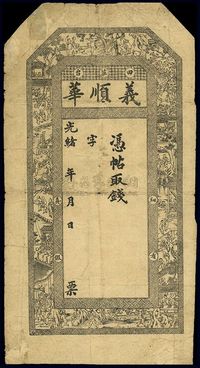 華順義
憑帖取錢
字
光緒 年 月 日 票